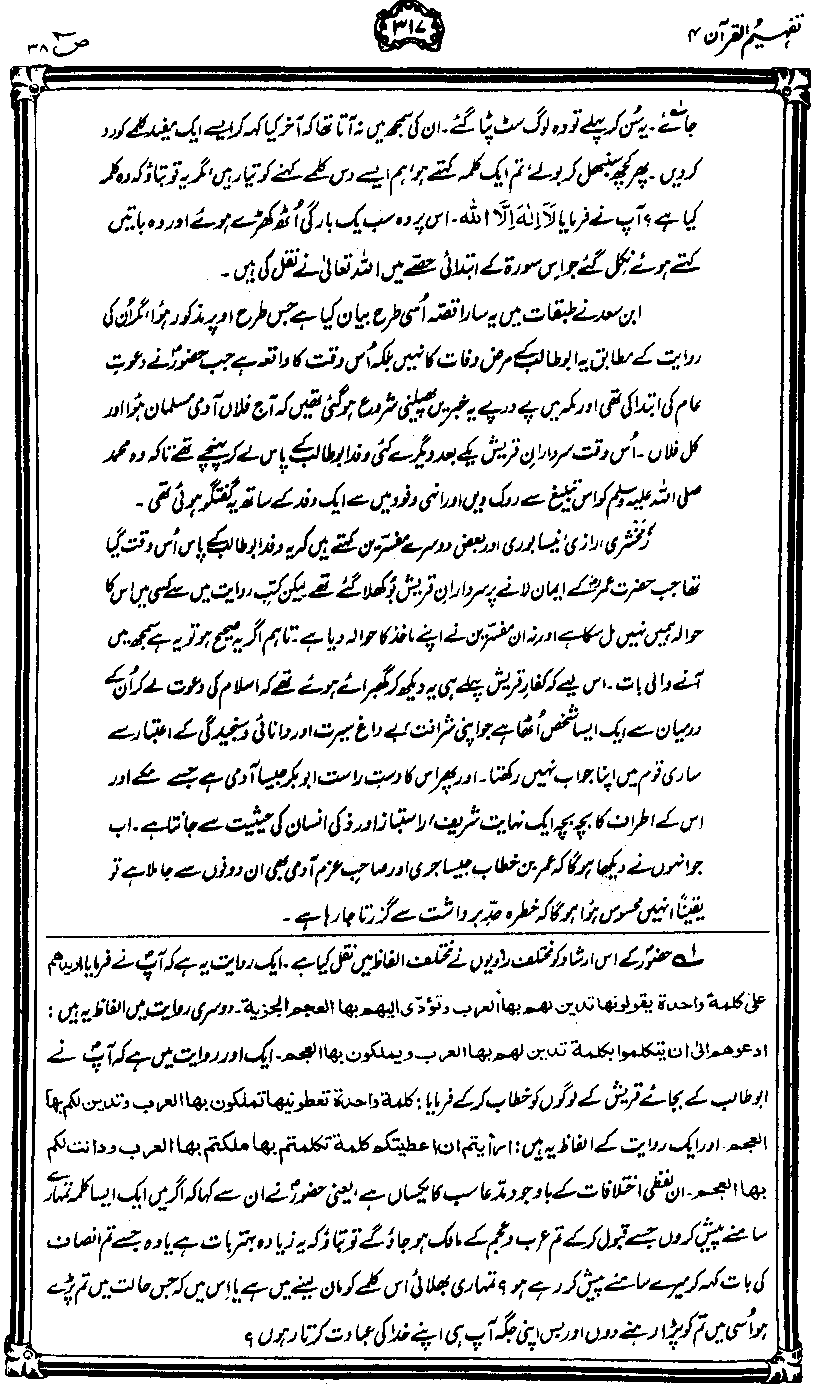 تفہیم القرآن ۴
۳۱۷
ص ۳۸
جائے۔ یہ سُن کر پہلے تو وہ لوگ سٹ پٹا گئے۔ ان کی سمجھ میں نہ آتا تھا کہ آخر کیا کہہ کر ایسے ایک مفید کلمے کو رد
کردیں۔ پھر کچھ سنبھل کر بولے، تم ایک کلمہ کہتے ہو، ہم ایسے دس کلمے کہنے کو تیار ہیں، مگر یہ تو بتاؤ کہ وہ کلمہ
کیا ہے؟ آپ نے فرمایا لَآ اِلٰہَ اِلَّا اللہ۔ اس پر وہ سب یک بارگی اُٹھ کھڑے ہوئے اور وہ باتیں
کہتے ہوئے نکل گئے جو اِس سورۃ کے ابتدائی حصے میں اللہ تعالیٰ نے نقل کی ہیں۔
ابن سعد نے طبقات میں یہ سارا قصّہ اُسی طرح بیان کیا ہے جس طرح اوپر مذکور ہُوا، مگر اُن کی
روایت کے مطابق یہ ابوطالب کے مرض وفات کا نہیں بلکہ اُس وقت کا واقعہ ہے جب حضورؐ نے دعوتِ
عام کی ابتدا کی تھی اور مکہ میں پے در پے یہ خبریں پھیلنی شروع ہوگئی تھیں کہ آج فلاں آدمی مسلمان ہُوا اور
کل فلاں۔ اُس وقت سردارانِ قریش یکے بعد دیگرے کئی وفد ابوطالب کے پاس لے کر پہنچے تھے تاکہ وہ محمد
صلی اللہ علیہ وسلم کو اس تبلیغ سے روک دیں اور انہی وفود میں سے ایک وفد کے ساتھ یہ گفتگو ہوئی تھی۔
زمخشری، رازی، نیسابوری اور بعض دوسرے مفسّرین کہتے ہیں کہ یہ وفد ابوطالب کے پاس اُس وقت گیا
تھا جب حضرت عمرؓ کے ایمان لانے پر سردارانِ قریش بَوکھلا گئے تھے لیکن کتبِ روایت میں سے کسی میں اس کا
حوالہ ہمیں نہیں مل سکا ہے اور نہ ان مفسّرین نے اپنے ماخذ کا حوالہ دیا ہے۔ تاہم اگر یہ صحیح ہو تو یہ ہے سمجھ میں
آنے والی بات۔ اس لیے کہ کفارِ قریش پہلے ہی یہ دیکھ کر گھبرائے ہوئے تھے کہ اسلام کی دعوت لے کر اُن کے
درمیان سے ایک ایسا شخص اُٹھا ہے جو اپنی شرافت، بے داغ سیرت اور دانائی و سنجیدگی کے اعتبار سے
ساری قوم میں اپنا جواب نہیں رکھتا۔ اور پھر اس کا دستِ راست ابوبکر جیسا آدمی ہے جسے مکے اور
اس کے اطراف کا بچہ بچہ ایک نہایت شریف، راستباز اور ذکی انسان کی حیثیت سے جانتا ہے۔ اب
جو انہوں نے دیکھا ہوگا کہ عمر بن خطاب جیسا جری اور صاحبِ عزم آدمی بھی ان دونوں سے جا ملا ہے تو
یقیناً انہیں محسوس ہُوا ہوگا کہ خطرہ حدِّ برداشت سے گزرتا جا رہا ہے۔
۱؎ حضورؐ کے اس ارشاد کو مختلف راویوں نے مختلف الفاظ میں نقل کیا ہے۔ ایک روایت یہ ہے کہ آپؐ نے فرمایا اریدھم
علیٰ کلمۃ واحدۃ یقولونھا تدین لھم بھا العرب وتؤدّی الیھم بھا العجم الجزیۃ۔ دوسری روایت میں الفاظ یہ ہیں:
ادعوھم الیٰ ان یتکلموا بکلمۃ تدین لھم بھا العرب ویملکون بھا العجم۔ ایک اور روایت میں ہے کہ آپؐ نے
ابوطالب کے بجائے قریش کے لوگوں کو خطاب کرکے فرمایا: کلمۃ واحدۃ تعطونیھا تملکون بھا العرب وتدین لکم بھا
العجم۔ اور ایک روایت کے الفاظ یہ ہیں: ارأیتم ان اعطیتکم کلمۃ تکلمتم بھا ملکتم بھا العرب ودانت لکم
بھا العجم۔ ان لفظی اختلافات کے باوجود مدّعا سب کا یکساں ہے، یعنی حضورؐ نے ان سے کہا کہ اگر میں ایک ایسا کلمہ تمہارے
سامنے پیش کروں جسے قبول کرکے تم عرب و عجم کے مالک ہو جاؤ گے تو بتاؤ کہ یہ زیادہ بہتر بات ہے یا وہ جسے تم انصاف
کی بات کہہ کر میرے سامنے پیش کر رہے ہو؟ تمہاری بھلائی اس کلمے کو مان لینے میں ہے یا اِس میں کہ جس حالت میں تم پڑے
ہو اُسی میں تم کو پڑا رہنے دوں اور بس اپنی جگہ آپ ہی اپنے خدا کی عبادت کرتا رہوں؟